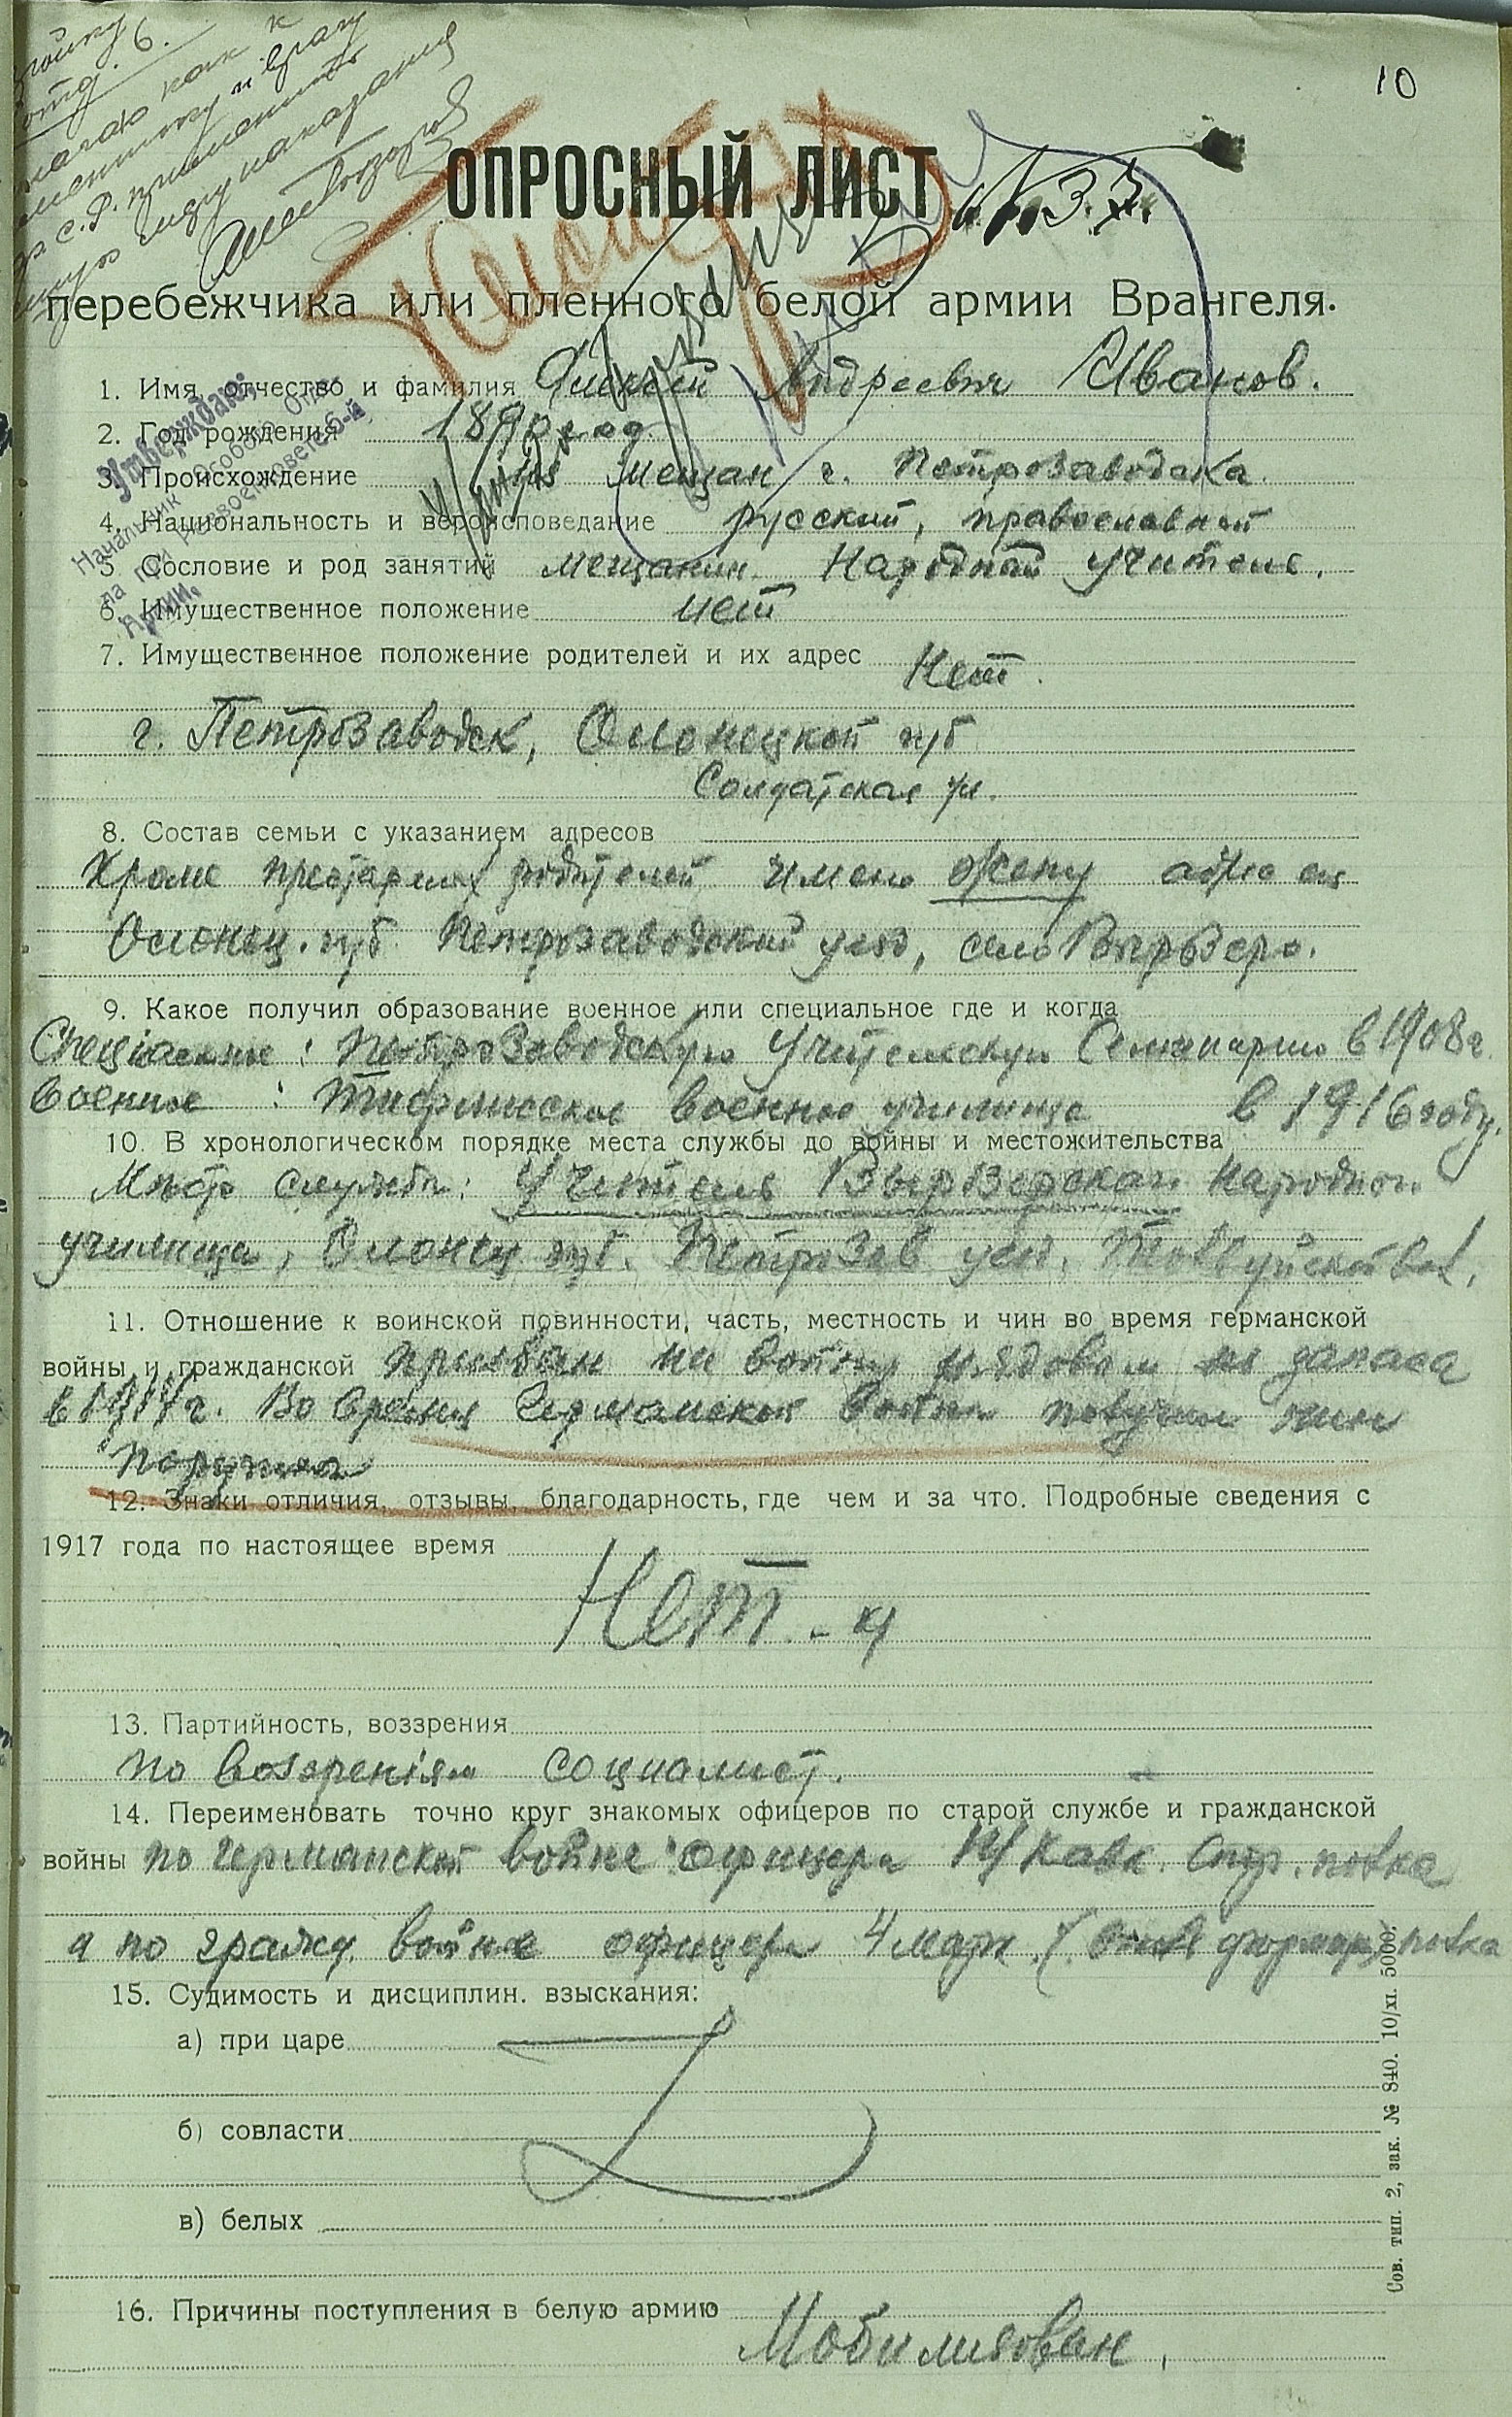 10
ОПРОСНЫЙ ЛИСТ
перебежчика или пленного белой армии Врангеля.
Утверждаю:
Начальник Особого Отде-
ла при Реввоенсовете 6-й
Армии.
1. Имя, отчество и фамилия Алексей Андреевич Иванов.
2. Год рождения 1890 год.
3. Происхождение из мещан г. Петрозаводска.
4. Национальность и вероисповедание русский, православный
5. Сословие и род занятий мещанин. Народный учитель.
6. Имущественное положение нет
7. Имущественное положение родителей и их адрес Нет.
г. Петрозаводск, Олонецкой губ
Солдатская ул.
8. Состав семьи с указанием адресов
Кроме престарелых родителей имею жену адрес ея
Олонец. губ. Петрозаводский уезд, село Вырозеро.
9. Какое получил образование военное или специальное где и когда
Специальное: Петрозаводскую Учительскую Семинарию в 1908 г.
Военное: Тифлисское военное училище в 1916 году.
10. В хронологическом порядке места службы до войны и местожительства
Место службы: Учитель Вырозерскаго народнаго
училища, Олонец. губ. Петрозав. уезд,
11. Отношение к воинской повинности, часть, местность и чин во время германской
войны и гражданской призван на войну рядовым из запаса
в 1914 г. Во время Германской войны получил чин
поручика
12. Знаки отличия, отзывы, благодарность, где чем и за что. Подробные сведения с
1917 года по настоящее время
Нет.
13. Партийность, воззрения
по воззрениям социалист.
14. Переименовать точно круг знакомых офицеров по старой службе и гражданской
войны по германской войне офицеры 14 Кавк. Стр. полка
а по гражд. войне офицеры 4 марк. полка
15. Судимость и дисциплин. взыскания:
а) при царе
б) совласти
в) белых
16. Причины поступления в белую армию
Мобилизован.
Сов. тип. 2, зак. № 840. 10/XI. 5000.